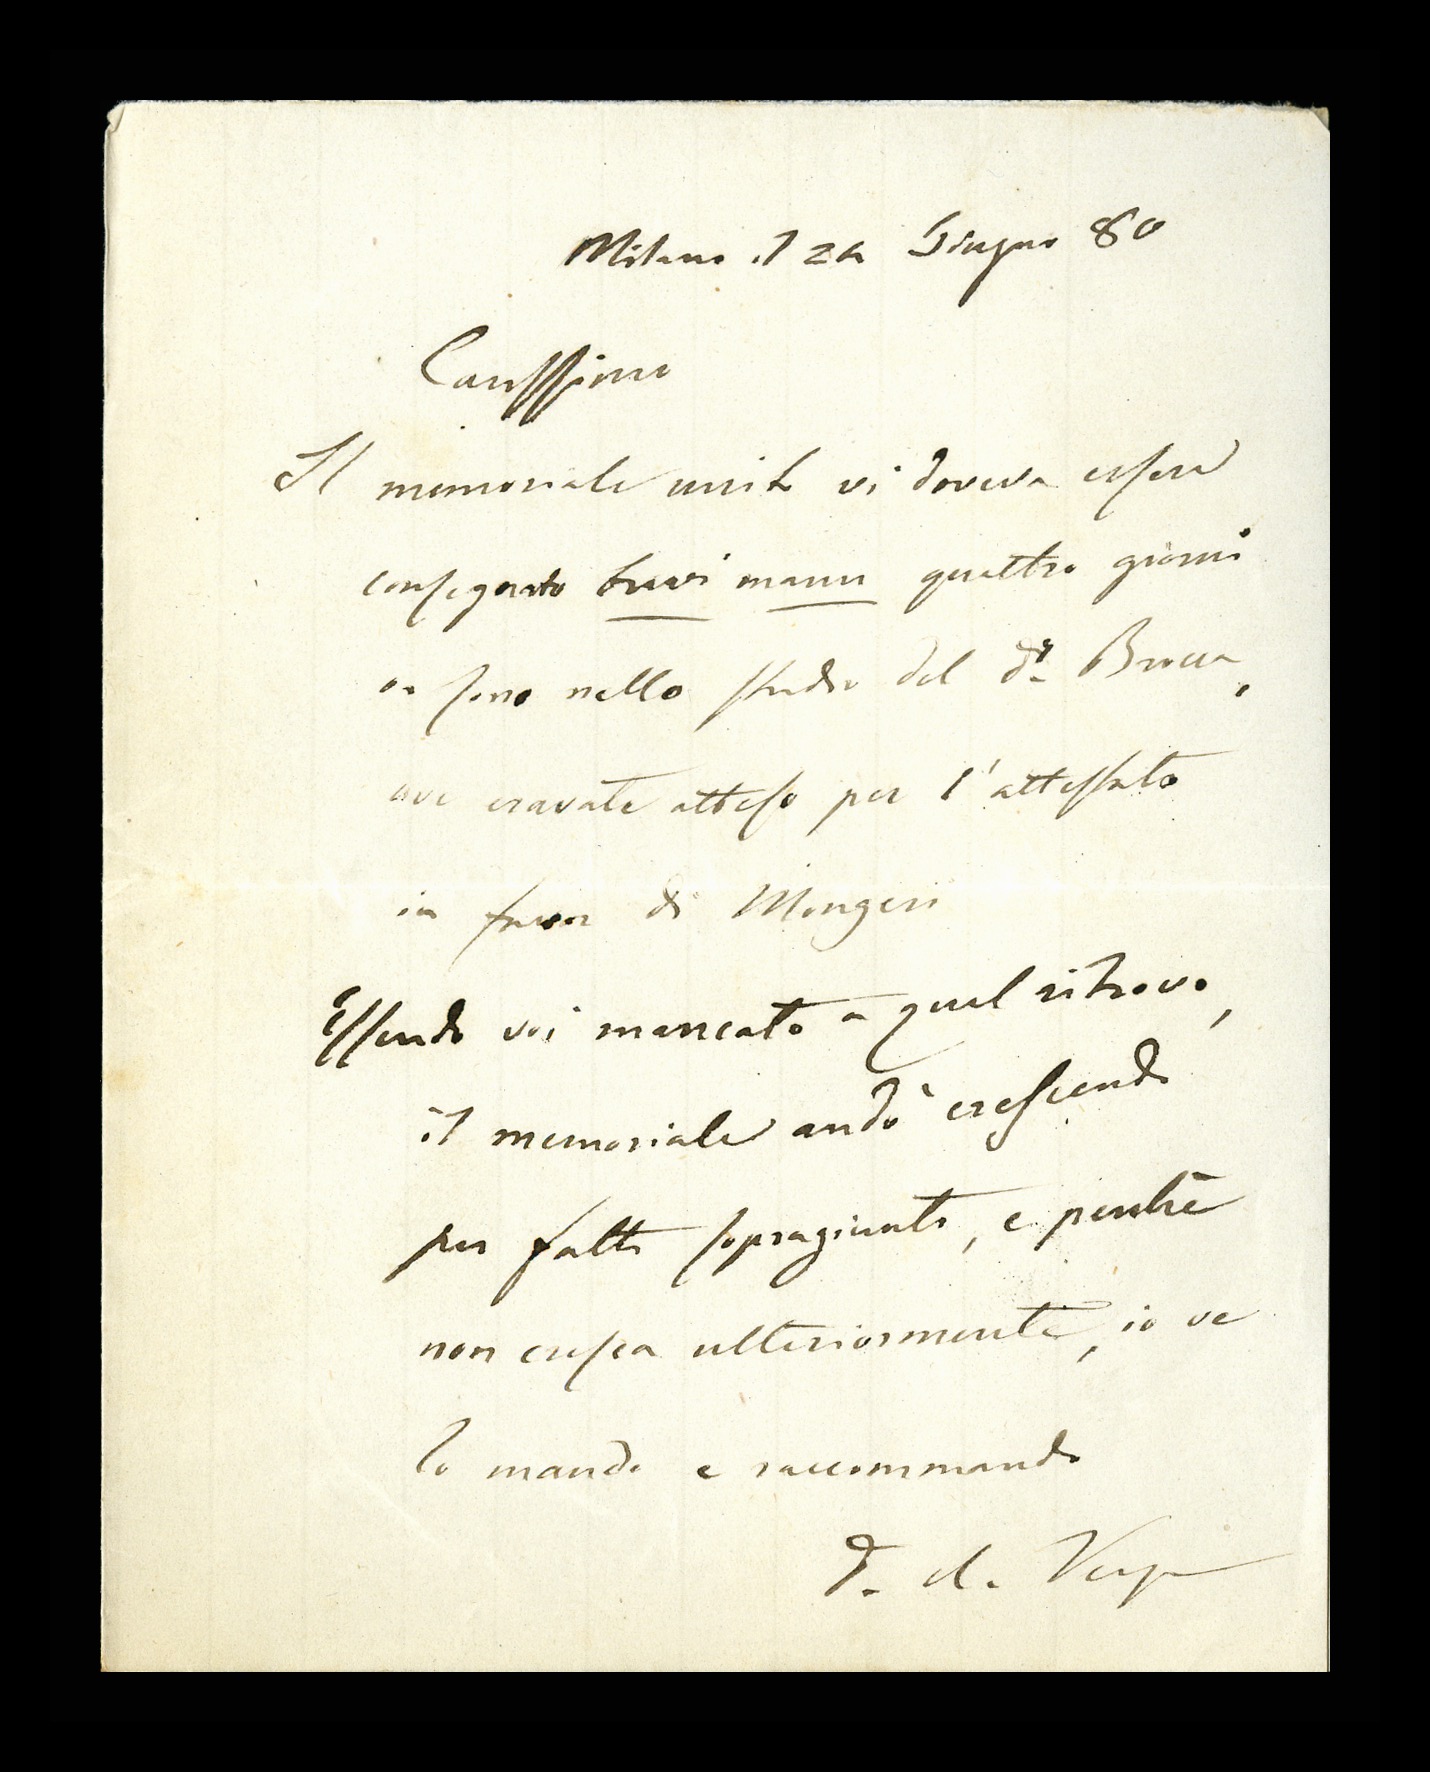 Milano il 2a Giugno 80
Carissimo
Il memoriale unito vi doveva essere
consegnato brevi manu quattro giorni
or sono nello studio del dr.
ove eravate atteso per l'attestato
in favor di Mongeri
Essendo voi mancato a quel ritrovo,
il memoriale andò crescendo
per fatti sopragiunti, e perchè
non cresca ulteriormente, io ve
lo mando e raccommando